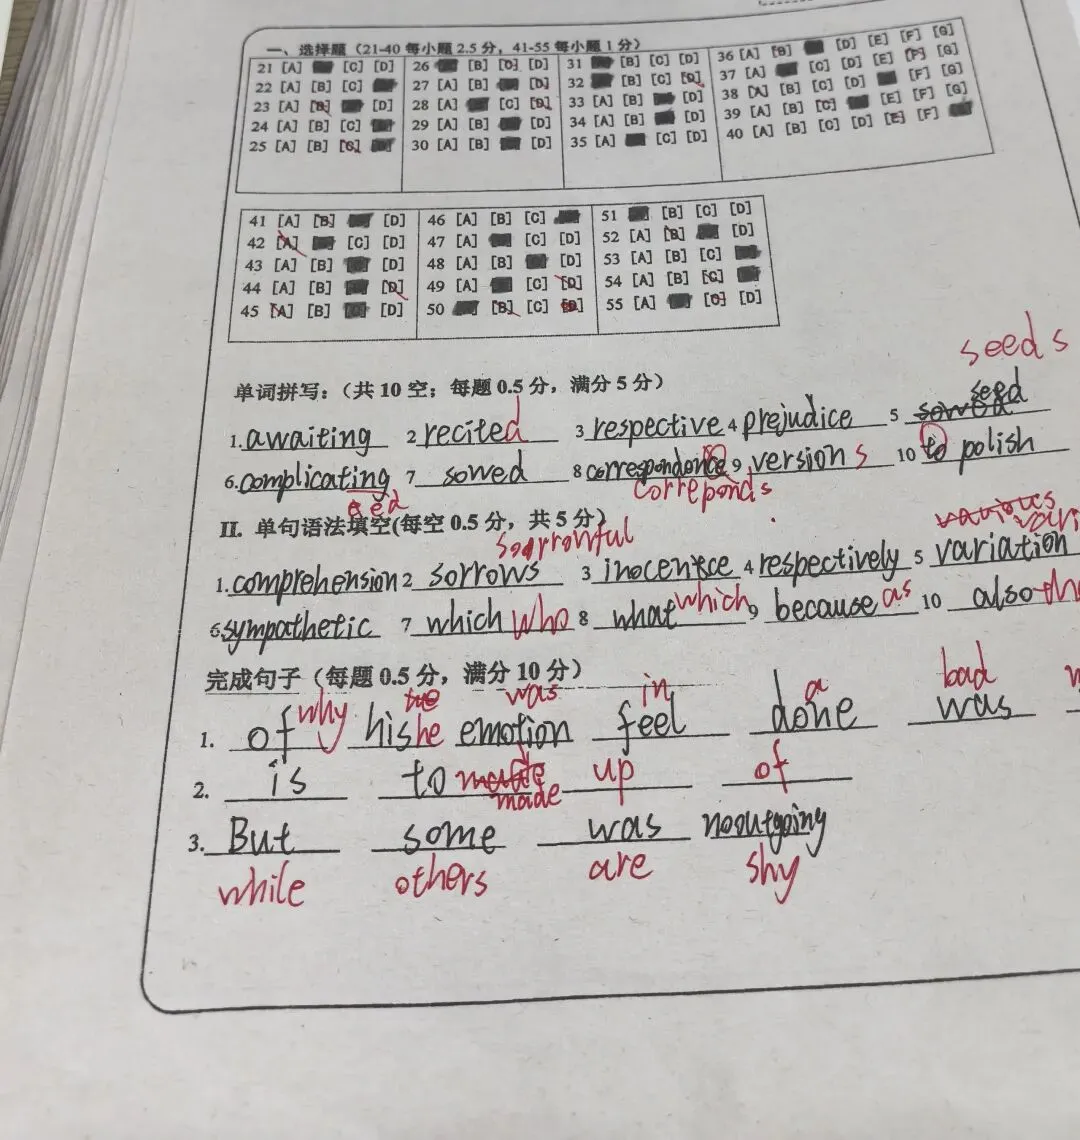 一、选择题（21-40 每小题 2.5 分，41-55 每小题 1 分）
21 [A] [C] [D] 26 [B] [C] [D] 31 [B] [C] [D] 36 [A] [B] [D] [E] [F] [G]
22 [A] [B] [C] 27 [A] [B] [D] 32 [B] [C] [D] 37 [A] [C] [D] [E] [F] [G]
23 [A] [B] [D] 28 [A] [C] [D] 33 [A] [B] [D] 38 [A] [B] [C] [D] [F] [G]
24 [A] [B] [C] 29 [A] [B] [D] 34 [A] [B] [D] 39 [A] [B] [C] [E] [F] [G]
25 [A] [B] [C] 30 [A] [B] [D] 35 [A] [C] [D] 40 [A] [B] [C] [D] [E] [F]
41 [A] [B] [D] 46 [A] [B] [C] 51 [B] [C] [D]
42 [A] [C] [D] 47 [A] [C] [D] 52 [A] [B] [D]
43 [A] [B] [D] 48 [A] [B] [D] 53 [A] [B] [C]
44 [A] [B] [D] 49 [A] [C] [D] 54 [A] [B] [C]
45 [A] [B] [D] 50 [B] [C] [D] 55 [A] [C] [D]
seeds
单词拼写：（共 10 空；每题 0.5 分，满分 5 分）
seed
1. awaiting 2 recited 3 respective 4 prejudice 5 sowed
6. complicating 7 sowed 8 correspondence 9 versions 10 to polish
ed correponds
II. 单句语法填空(每空 0.5 分，共 5 分)
various
sorrowful
1. comprehension 2 sorrows 3 inocentce 4 respectively 5 variation
6. sympathetic 7 which who 8 what which 9 because as 10 also
完成句子（每题 0.5 分，满分 10 分）
why he was in a bad
1. of his emotion feel done was
2. is to made up of
made
3. But some was nooutgoing
while others are shy